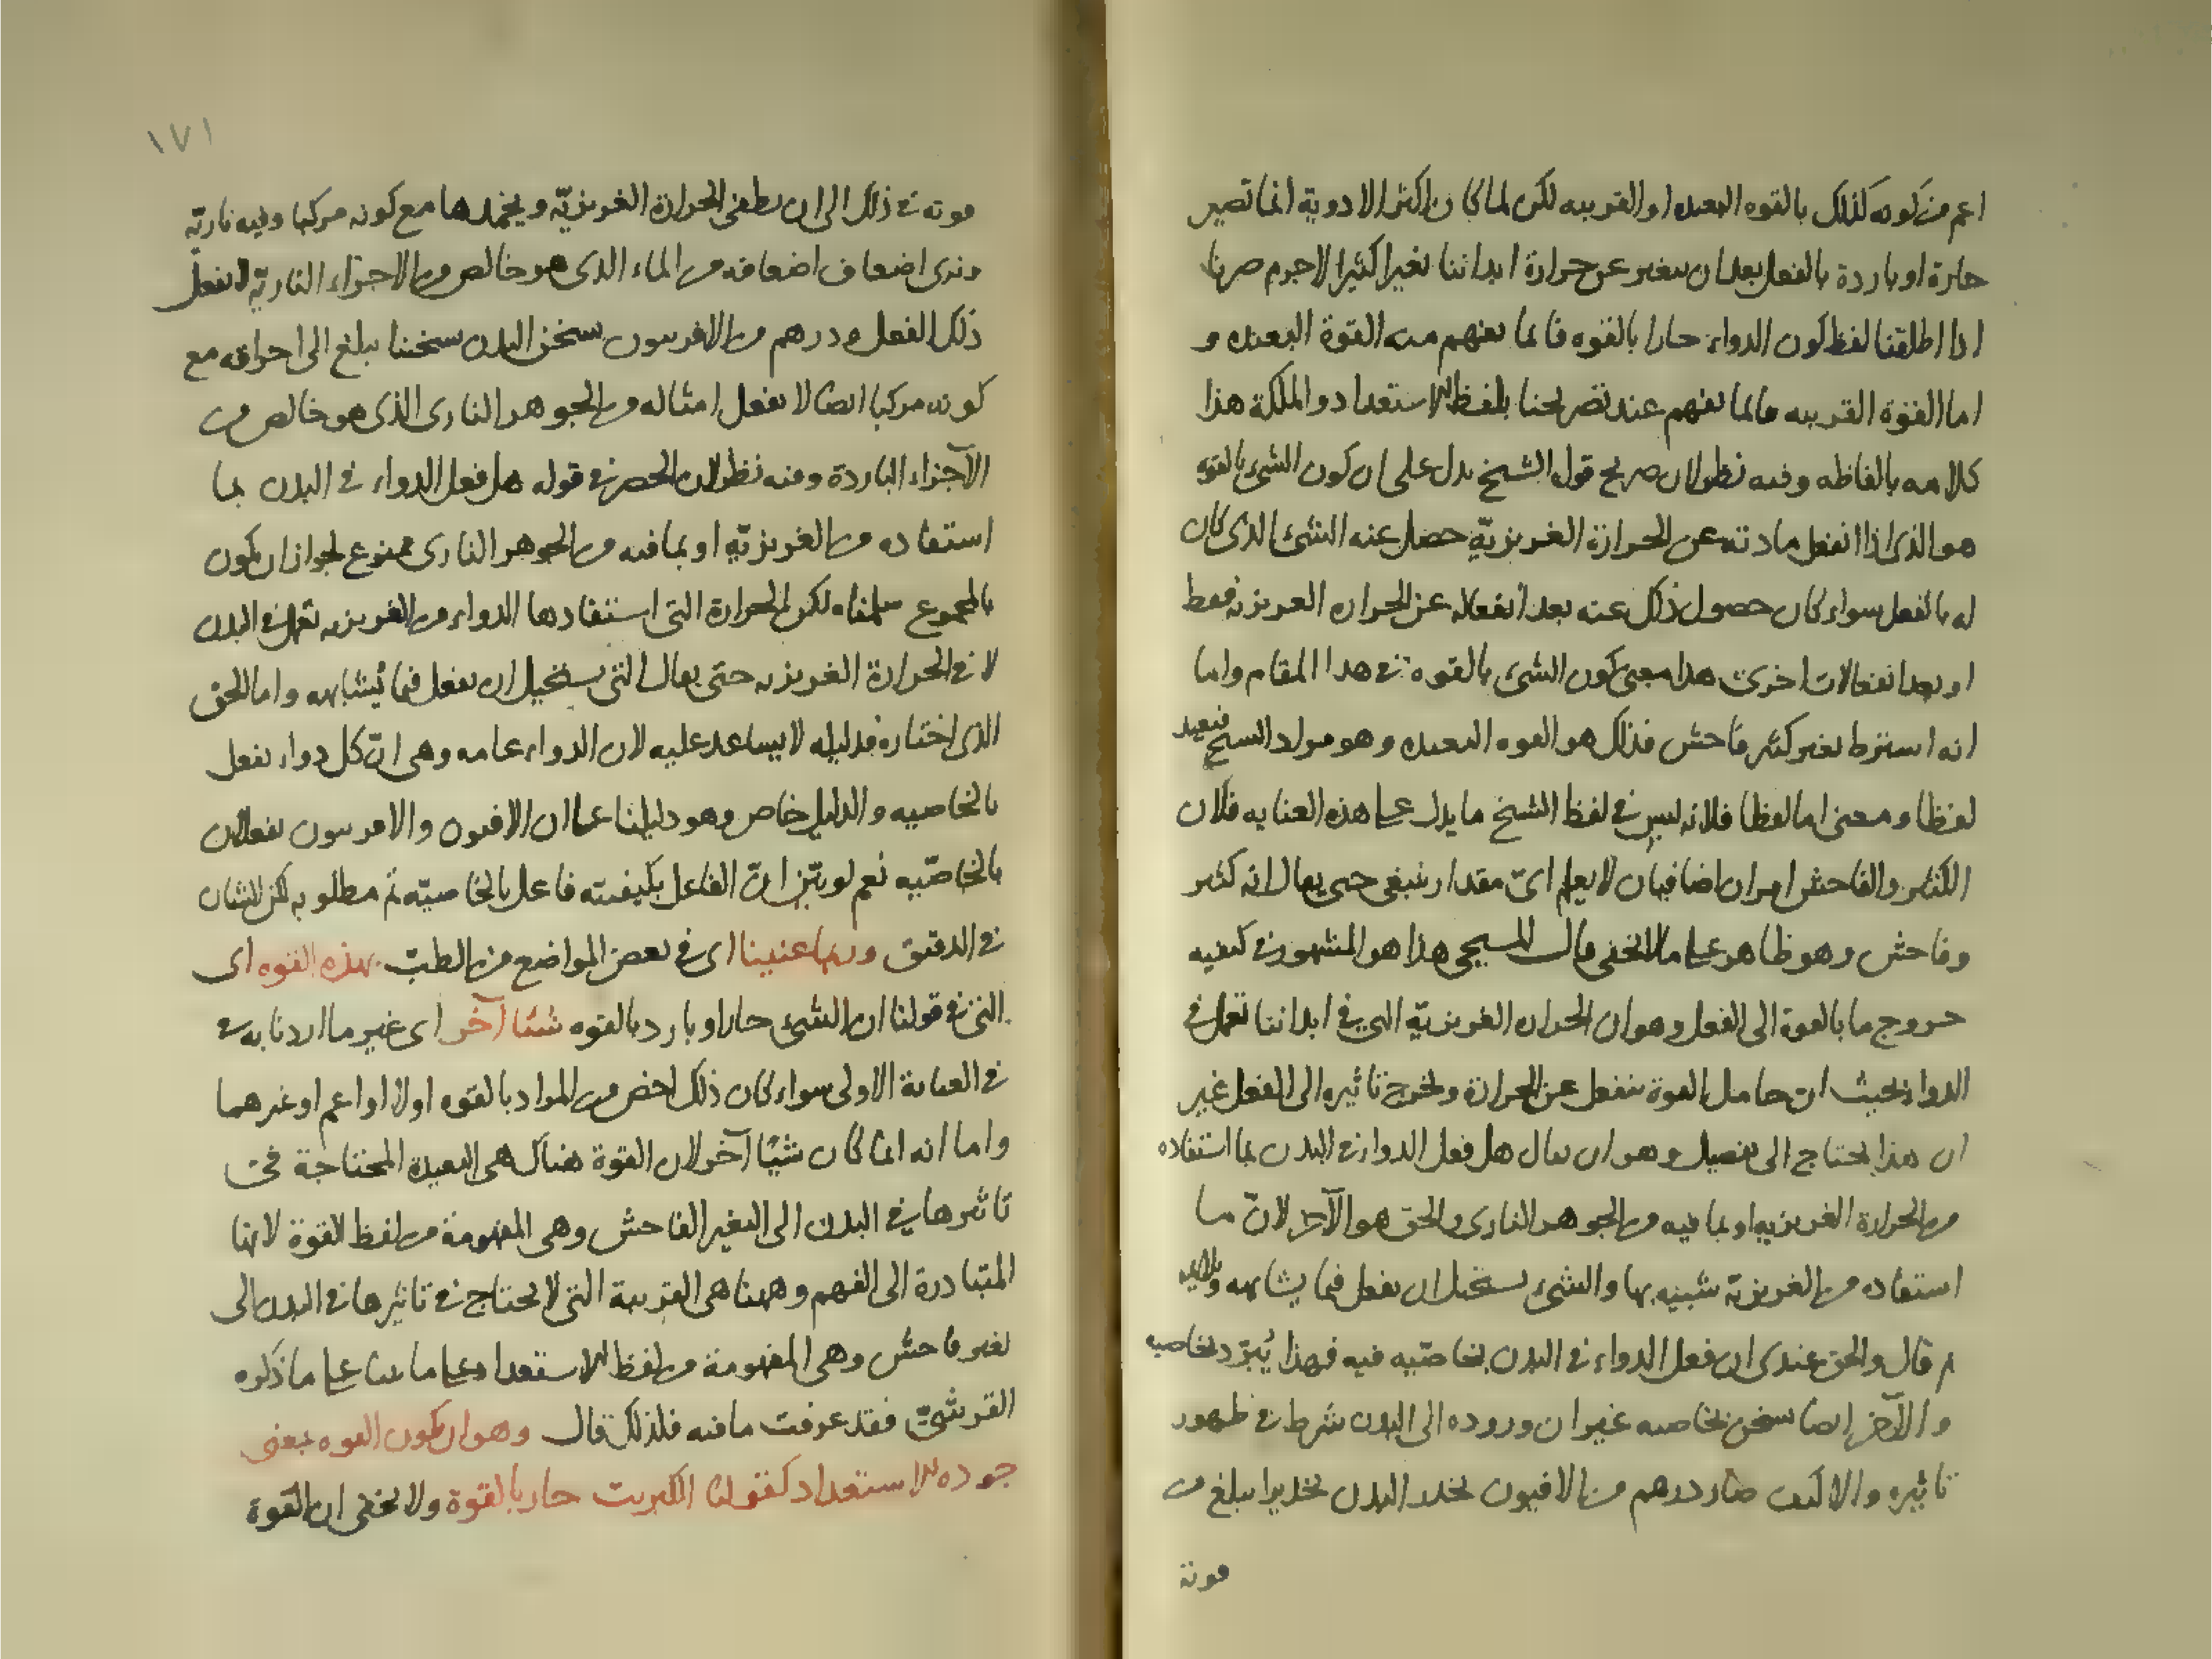 اعم من كونه كذلك بالقوه البعيده او القريبه لكن لما كان اكثر الادوية انما تصير
حارة او باردة بالفعل بعد ان يتغير عن حرارة ابداننا تغيرا كثيرا لاجرم صرنا
اذا اطلقنا لفظ كون الدواء حارا بالقوه فانما يفهم منه القوة البعيده و
اما القوة القريبه فانما يفهم عند تصريحنا بلفظ الاستعداد والملكة هذا
كلامه بالفاظه وفيه نظر لان صريح قول الشيخ يدل على ان كون الشئ بالقوه
هو الذي اذا انفعل مادته عن الحرارة الغريزيّة حصل عنه الشئ الذى كان
له بالفعل سواء كان حصول ذلك عنه بعد انفعاله عن الحراره الغريزيه فقط
او بعد انفعالات اخرى هذا معنى كون الشئ بالقوه فى هذا المقام واما
انه اشترط تغير كثير فاحش فذلك هو القوه البعيده وهو مراد الشيخ فبعيد
لفظا ومعنى اما لفظا فلانه ليس فى لفظ الشيخ ما يدل على هذه العنايه فلان
الكثير والفاحش امران اضافيان لا يعلم اىّ مقدار ينبغى حتى يقال انه كثير
وفاحش وهو ظاهر على ما لا يخفى قال المسيحى هذا هو المشهور فى كيفيه
خروج ما بالقوة الى الفعل وهو ان الحراره الغريزيّة التى فى ابداننا تعمل فى
الدواء بحيث ان حامل القوة ينفعل عن الحرارة ويخرج تاثيره الى الفعل غير
ان هذا يحتاج الى تفصيل وهو ان يقال هل فعل الدواء فى البدن بما استفاده
من الحرارة الغريزيه او بما فيه من الجوهر النارى والحق هو الآخر لانّ ما
استفاده من الغريزيّة شبيه بها والشئ يستحيل ان يفعل فيما يشابهه
ثم قال والحق عندى ان فعل الدواء فى البدن بخاصّيه فيه فهذا يُبرّد بخاصيه
والآخر ايضا يسخن بخاصيه غير ان وروده الى البدن شرط فى ظهور
تاثيره والا كيف صار درهم من الافيون يخدر البدن تخديرا يبلغ من
قوته
١٧١
قوته فى ذلك الى ان يطفى الحرارة الغريزيّة ويخمدها مع كونه مركبا وفيه ناريّة
ونرى اضعاف اضعافه من الماء الذى هو خالص من الاجزاء الناريّة لا يفعل
ذلك الفعل ودرهم من الافربيون يسخن البدن تسخينا يبلغ الى احراقه مع
كونه مركبا ايضا لا يفعل امثاله من الجوهر النارى الذى هو خالص من
الآجزاء الباردة وفيه نظر لان الحصر فى قوله هل فعل الدواء فى البدن بما
استفاده من الغريزيّة او بما فيه من الجوهر النارى ممنوع لجواز ان يكون
بالمجموع سلمناه لكن الحرارة التى استفادها الدواء من الغريزيه تعمل فى البدن
لا فى الحرارة الغريزيه حتى يقال التى يستحيل ان يفعل فيما يُشابهه واما الحق
الذى اختاره فدليله لا يساعد عليه لان الدعواء عامه وهى انّ كل دواء يفعل
بالخاصيه والدليل خاص وهو دليلنا على ان الافيون والافربيون يفعلان
بالخاصّيه نعم لو بيّن انّ الفاعل بكيفيته فاعل بالخاصيّه تم مطلوبه لكن الشان
فى الدقيق وربما عنينا اى فى بعض المواضع من الطبّ بهذه القوه اى
التى فى قولنا ان الشئ حار او بارد بالقوه شيئا آخر اى غير ما اردنا به فى
فى العناية الاولى سواء كان ذلك اخص من المواد بالقوه اولا او اعم او غيرهما
واما انه انما كان شيًا آخر لان القوة هناك هى البعيدة المحتاجة فى
تاثيرها فى البدن الى التغير الفاحش وهى المفهومة من لفظ القوة لانها
المتبادرة الى الفهم وههنا هى القريبة التى لا يحتاج فى تاثيرها فى البدن الى
تغير فاحش وهى المفهومة من لفظ الاستعداد وعلى ما بينا على ما ذكره
القرشىّ فقد عرفت ما فيه فلذلك قال وهو ان يكون القوه بمعنى
جوده الاستعداد كقولنا الكبريت حار بالقوة ولا يخفى ان القوة